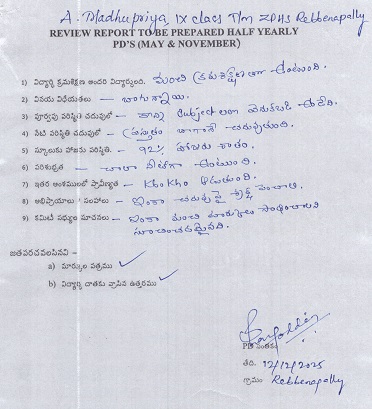 A. Madhupriya, IX class T/m ZPHS Rebbenapally
REVIEW REPORT TO BE PREPARED HALF YEARLY
PD'S (MAY & NOVEMBER)
1) విద్యార్థి క్రమశిక్షణ అందరి విద్యార్థులది. మంచి క్రమశిక్షణ గా ఉంటుంది.
2) వినయ విధేయతలు – బాగున్నాయి.
3) పూర్వపు పరిస్థితి చదువులో – కొన్ని Subject లలో వెనుకబడి ఉండేది.
4) నేటి పరిస్థితి చదువులో – ప్రస్తుతం బాగానే చదువుతుంది.
5) స్కూలుకు హాజరు పరిస్థితి. – 92% హాజరు శాతం.
6) పరిశుభ్రత – చాలా నీట్‌గా ఉంటుంది.
7) ఇతర అంశములలో ప్రావీణ్యత – Kho Kho ఆడుతుంది.
8) అభిప్రాయాలు సలహాలు – ఇంకా చదువు పై శ్రద్ధ పెంచాలి.
9) కమిటీ సభ్యుల సూచనలు – ఇంకా మంచి మార్కులు సాధించాలని
సూచించడమైనది.
జతపరచవలసినవి –
a) మార్కుల పత్రము
b) విద్యార్థి దాతకు వ్రాసిన ఉత్తరము
PD సంతకం
తేది. 12/12/2025
గ్రామం Rebbenapally